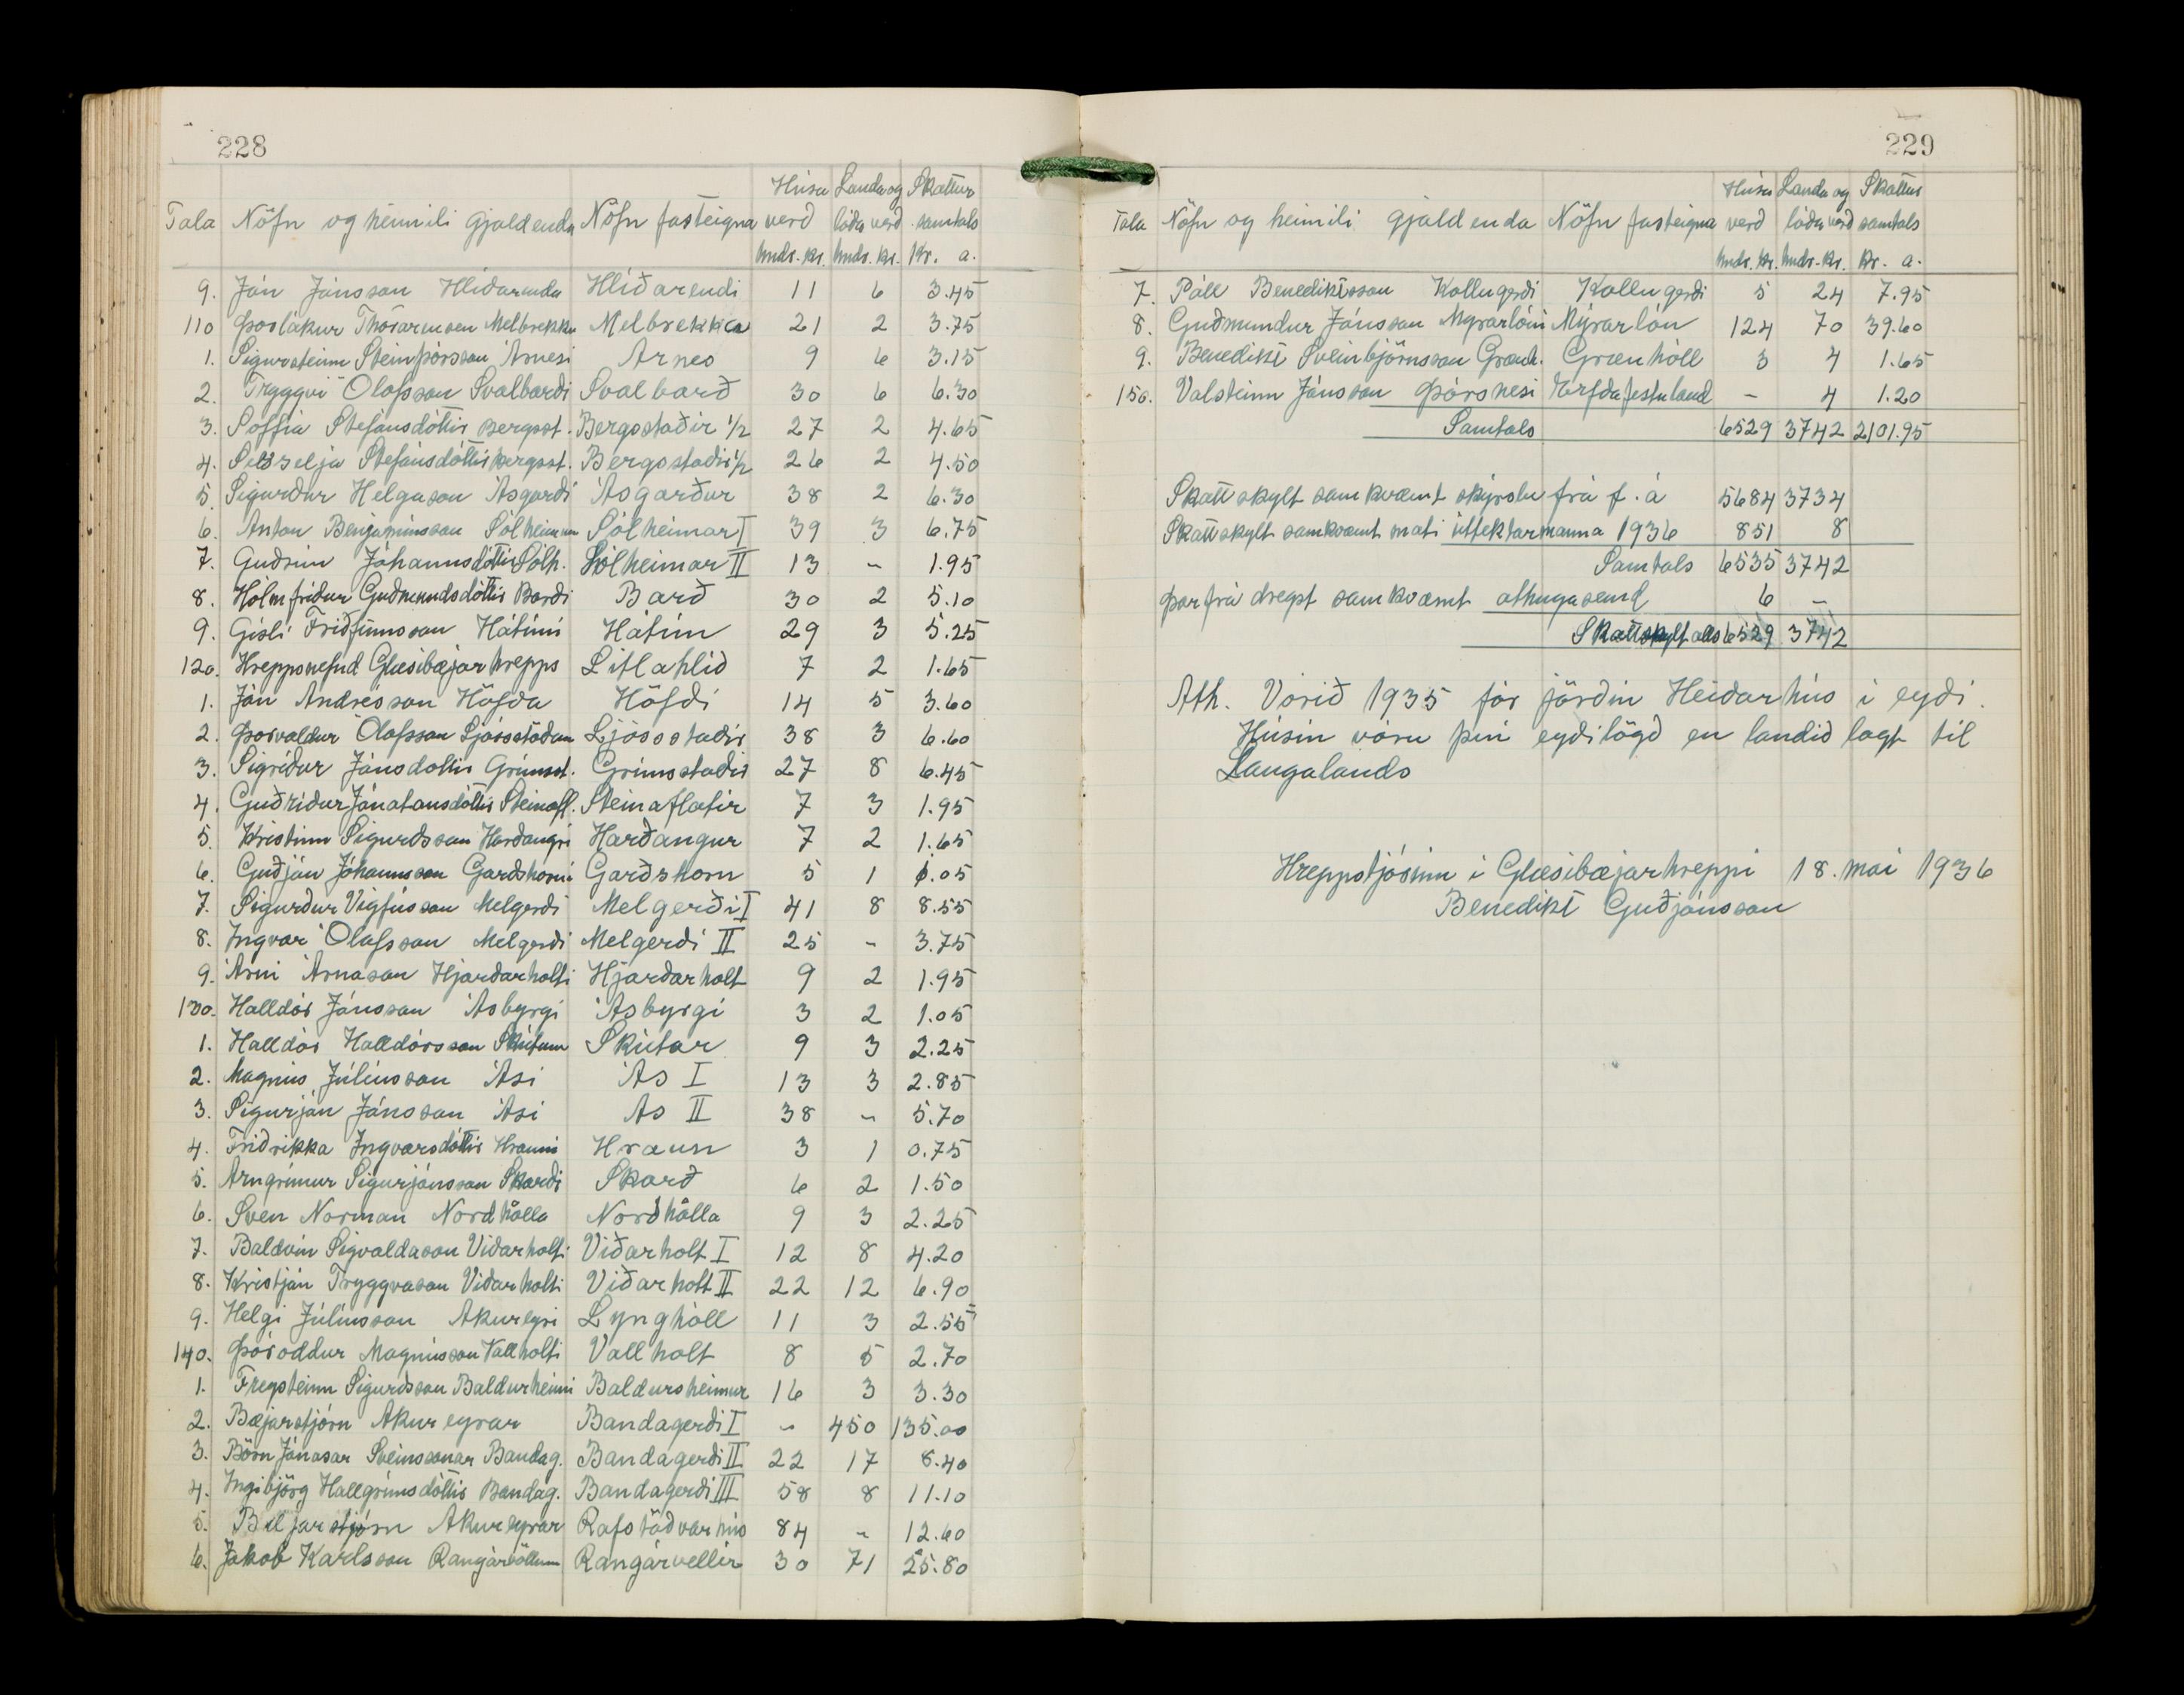 228
Tala Nöfn og heimili gjaldenda Nöfn fasteigna Húsa verd hndr. kr. Landa og lóða verd hndr. kr. Skattur samtals Kr. a.
9. Jón Jónsson Hlíðarenda Hlíðarendi 11 6 3.45
110 Þorlákur Thorarensen Melbrekku Melbrekka 21 2 3.75
1. Sigursteinn Steinþórsson Árnesi Arnes 9 6 3.15
2. Tryggvi Ólafsson Svalbardi Svalbarð 30 6 6.30
3. Soffía Stefánsdóttir Bergsst. Bergsstaðir 1/2 27 2 4.65
4. Sesselja Stefánsdóttir Bergsst. Bergsstadir 1/2 26 2 4.50
5. Sigurdur Helgason Ásgardi Ásgarður 38 2 6.30
6. Anton Benjamínsson Sólheimum Sólheimar I 39 3 6.75
7. Gudrún Jóhannsdóttir Sólh. Sólheimar II 13 - 1.95
8. Hólmfridur Gudmundsdóttir Bardi Barð 30 2 5.10
9. Gísli Friðfinnsson Hátúni Hátún 29 3 5.25
120. Hreppsnefnd Glæsibæjarhrepps Litlahlid 7 2 1.65
1. Jón Andrésson Höfda Höfdi 14 5 3.60
2. Þorvaldur Ólafsson Ljósstödum Ljósstadir 38 3 6.60
3. Sigrídur Jónsdóttir Grímsst. Grímsstadir 27 8 6.45
4. Guðrídur Jónatansdóttir Steinafl. Steinaflatir 7 3 1.95
5. Kristinn Sigurdsson Hardangri Harðangur 7 2 1.65
6. Guðjón Jóhannsson Gardshorni Garðshorn 5 1 1.05
7. Sigurdur Vigfússon Melgerdi Melgerði I 41 8 8.55
8. Ingvar Ólafsson Melgerdi Melgerdi II 25 - 3.75
9. Árni Árnason Hjardarholti Hjardarholt 9 2 1.95
130. Halldór Jónsson Ásbyrgi Ásbyrgi 3 2 1.05
1. Halldór Halldórsson Skútum Skútar 9 3 2.25
2. Magnús Júlíusson Ási Ás I 13 3 2.85
3. Sigurjón Jónsson Ási Ás II 38 - 5.70
4. Fridrikka Ingvarsdóttir Hrauni Hraun 3 1 0.75
5. Arngrímur Sigurjónsson Skardi Skarð 6 2 1.50
6. Sven Norman Nordhölla Nordhölla 9 3 2.25
7. Baldvin Sigvaldason Vidarholti Viðarholt I 12 8 4.20
8. Kristján Tryggvason Vidarholti Viðarholt II 22 12 6.90
9. Helgi Júlíusson Akureyri Lynghóll 11 3 2.55
140. Þóroddur Magnússon Vallholti Vallholt 8 5 2.70
1. Freysteinn Sigurdsson Baldurheimi Baldursheimur 16 3 3.30
2. Bæjarstjórn Akureyrar Bandagerdi I - 450 135.00
3. Börn Jónasar Sveinssonar Bandag. Bandagerdi II 22 17 8.40
4. Ingibjörg Hallgrímsdóttir Bandag. Bandagerdi III 58 8 11.10
5. Bæjarstjórn Akureyrar Rafstödvarhús 84 - 12.60
6. Jakob Karlsson Rangárvöllum Rangárvellir 30 71 25.80
229
Tala Nöfn og heimili gjaldenda Nöfn fasteigna Húsa verd hndr. kr. Landa og lóða verd hndr. kr. Skattur samtals kr. a.
7. Páll Benediktsson Kollugerdi Kollugerdi 5 24 7.95
8. Gudmundur Jónsson Mýrarlóni Mýrarlón 124 70 39.60
9. Benedikt Sveinbjörnsson Grænh. Grænhóll 3 4 1.65
150. Valsteinn Jónsson Þórsnesi Erfdafestuland - 4 1.20
Samtals 6529 3742 2101.95
Skattskylt samkvæmt skýrslu frá f. á 5684 3734
Skattskylt samkvæmt mati úttektarmanna 1936 851 8
Samtals 6535 3742
Þar frá dregst samkvæmt athugasemd 6 -
Skattskylt alls 6529 3742
Ath. Vorið 1935 fór jördin Heidarhús í eydi.
Húsin voru þui eydilögd en landid lagt til
Laugalands
Hreppstjórinn í Glæsibæjarhreppi 18. maí 1936
Benedikt Guðjónsson